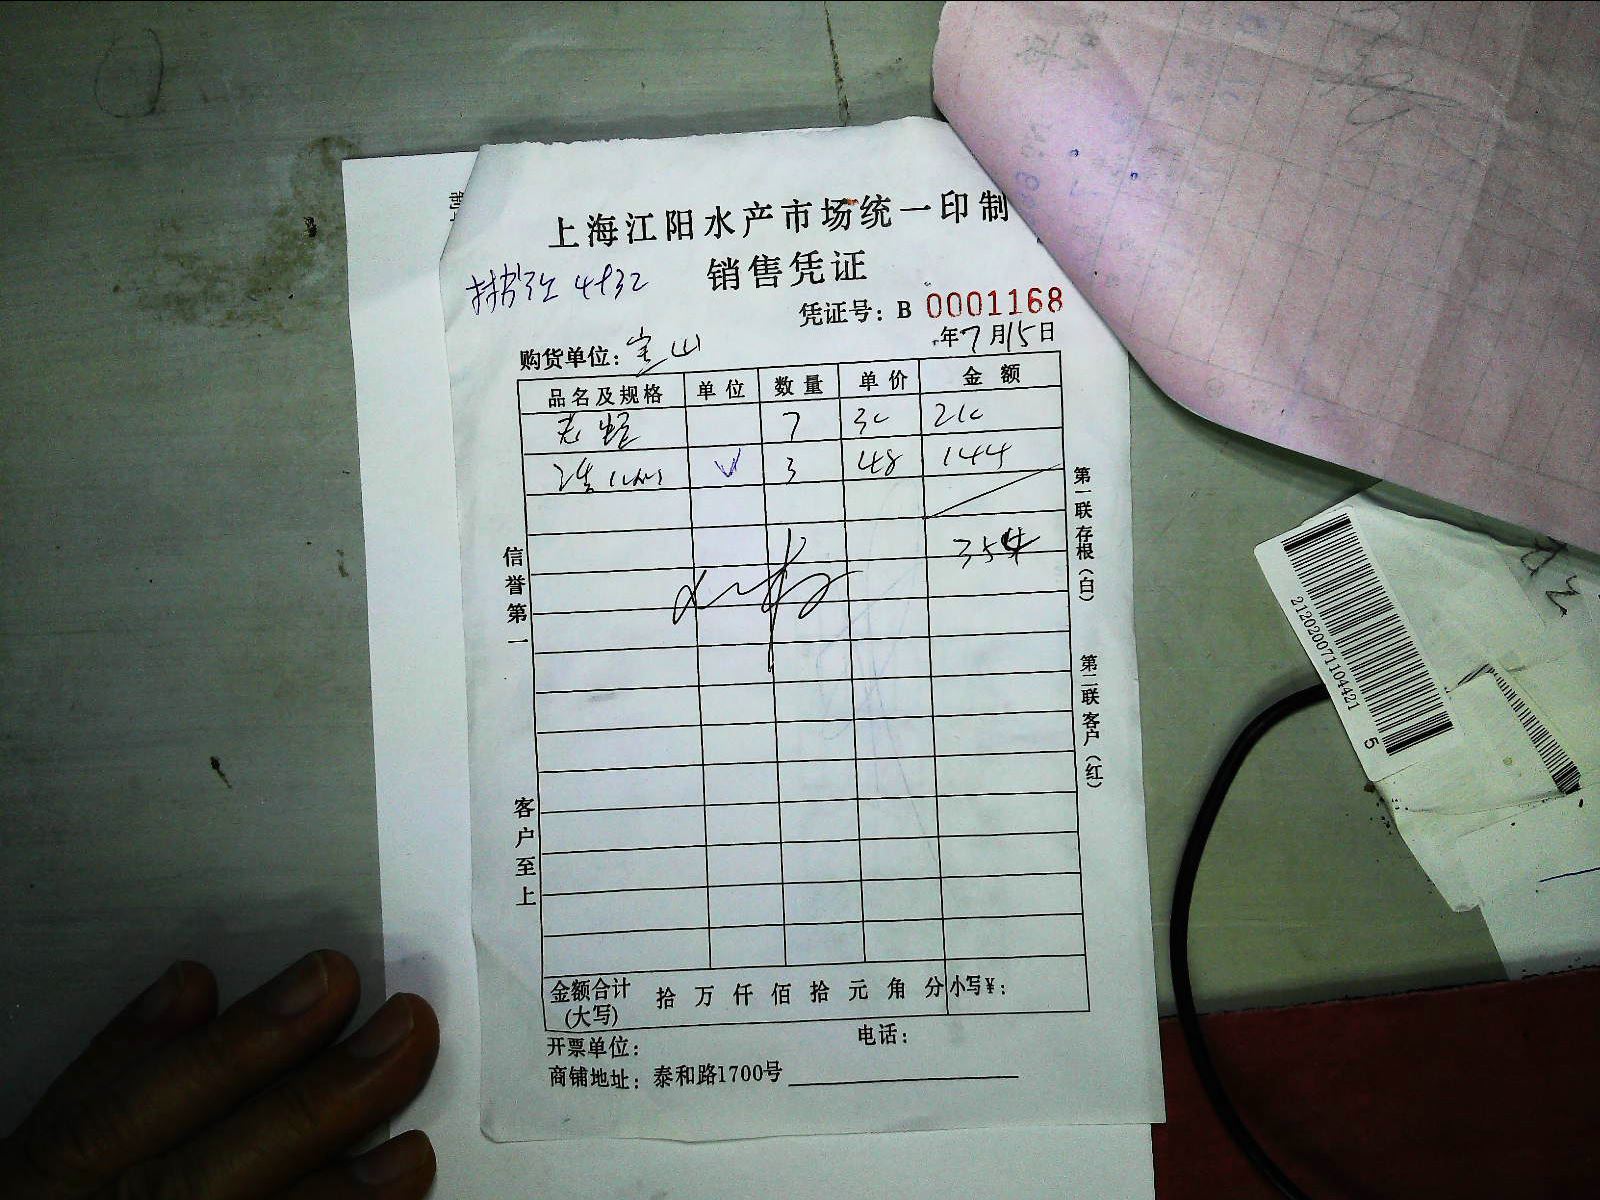 上海江阳水产市场统一印制
销售凭证
凭证号：B 0001168
购货单位：宝山
年7月15日
品名及规格 单位 数量 单价 金额
7 30 210
3 48 144
354
信誉第一
客户至上
第一联存根（白）
第二联客户（红）
金额合计(大写) 拾万仟佰拾元角分 小写¥：
开票单位：
电话：
商铺地址：泰和路1700号
2120200711044215